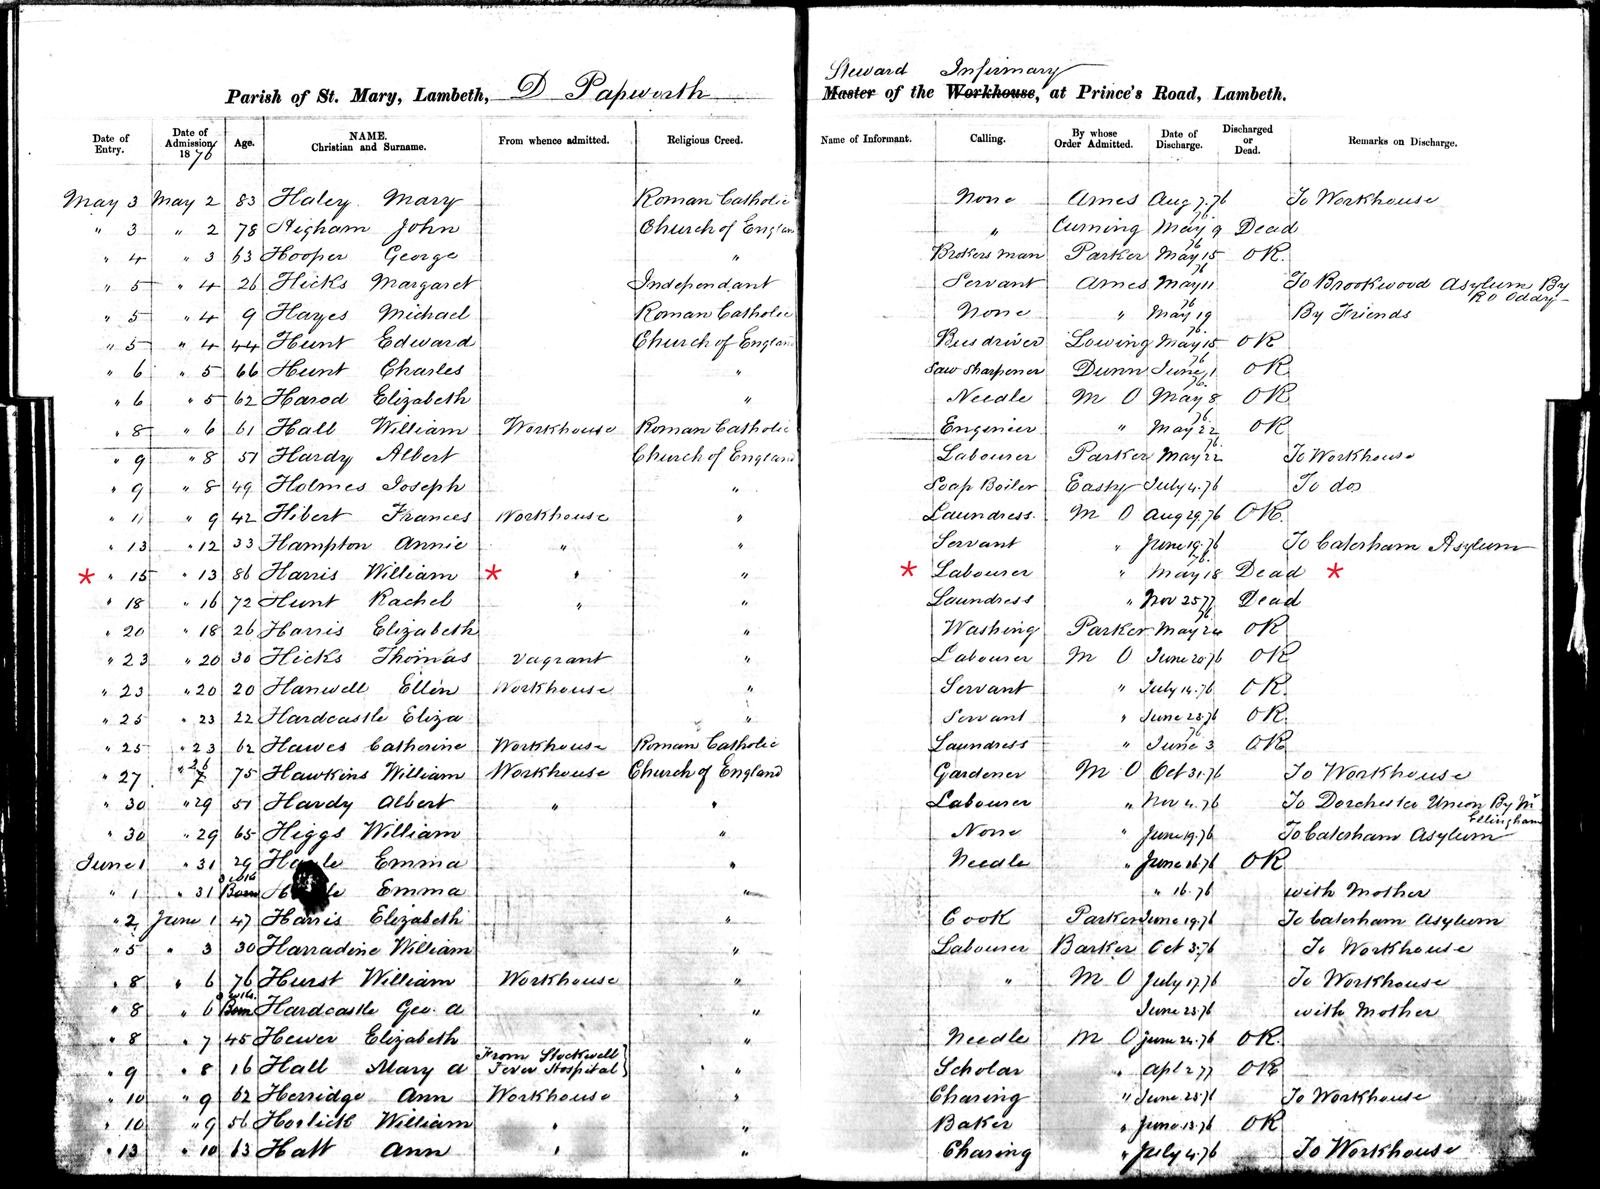 Steward Infirmary
Parish of St. Mary, Lambeth, D Papworth Master of the Workhouse, at Prince's Road, Lambeth.
Date of Entry. Date of Admission 1876 Age. NAME. Christian and Surname. From whence admitted. Religious Creed. Name of Informant. Calling. By whose Order Admitted. Date of Discharge. Discharged or Dead. Remarks on Discharge.
May 3 May 2 83 Haley Mary Roman Catholic None Ames Aug 7.76 To Workhouse
" 3 " 2 78 Higham John Church of England " Cuming May 9 76 Dead
" 4 " 3 63 Hooper George " Brokers man Parker May 15 76 OR.
" 5 " 4 26 Hicks Margaret Independant Servant Ames May 11 76 To Brookwood Asylum By RO Oddy
" 5 " 4 9 Hayes Michael Roman Catholic None " May 19 76 By Friends
" 5 " 4 44 Hunt Edward Church of England Bus driver Lowing May 15 76 OR
" 6 " 5 66 Hunt Charles " Saw Sharpener Dunn June 1 76 OR
" 6 " 5 62 Harod Elizabeth " Needle M O May 8 76 OR
" 8 " 6 61 Hall William Workhouse Roman Catholic Enginier " May 22 76 OR
" 9 " 8 51 Hardy Albert Church of England Labourer Parker May 22 76 To Workhouse
" 9 " 8 49 Holmes Joseph " Soap Boiler Easty July 4.76 To do
" 11 " 9 42 Hibert Frances Workhouse " Laundress. M O Aug 29.76 OR.
" 13 " 12 33 Hampton Annie " " Servant " June 19.76 To Caterham Asylum
* " 15 " 13 86 Harris William * " " * Labourer " May 18 76 Dead *
" 18 " 16 72 Hunt Rachel " " Laundress " Nov 25 77 Dead
" 20 " 18 26 Harris Elizabeth " Washing Parker May 24 76 OR
" 23 " 20 30 Hicks Thomas Vagrant " Labourer M O June 20.76 OR
" 23 " 20 20 Hanwell Ellen Workhouse " Servant " July 14.76 OR.
" 25 " 23 22 Hardcastle Eliza " Servant " June 23.76 OR.
" 25 " 23 62 Hawes Catherine Workhouse Roman Catholic Laundress " June 3 76 OR
" 27 " 26 75 Hawkins William Workhouse Church of England Gardener M O Oct 31.76 To Workhouse
" 30 " 29 51 Hardy Albert " " Labourer " Nov 4.76 To Dorchester Union By Mr Ellingham
" 30 " 29 65 Higgs William " None " June 19.76 To Caterham Asylum
June 1 " 31 29 Emma " Needle " June 16.76 OR
" 1 " 31 Born Emma " " 16.76 with Mother
" 2 June 1 47 Harris Elizabeth " Cook Parker June 19.76 To Caterham Asylum
" 5 " 3 30 Harradine William " Labourer Barker Oct 3.76 To Workhouse
" 8 " 6 76 Hurst William Workhouse " " M O July 17.76 To Workhouse
" 8 " 6 Born Hardcastle Geo. A " June 23.76 with Mother
" 8 " 7 45 Hewer Elizabeth " Needle M O June 24.76 OR.
" 9 " 8 16 Hall Mary A From Stockwell Fever Hospital } " Scholar " Apl 2 77 OR
" 10 " 9 62 Herridge Ann Workhouse " Charing " June 23.76 To Workhouse
" 10 " 9 56 Horlick William " " Baker " June 13.76 OR
" 13 " 10 63 Hatt Ann " " Charing " July 4.76 To Workhouse